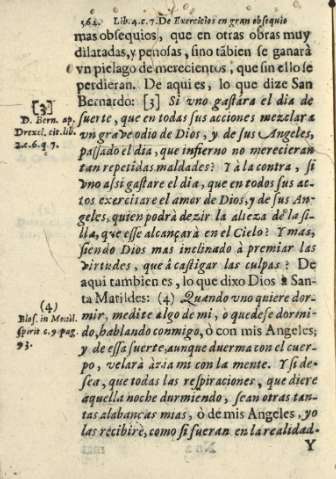 562. Lib. 4. c. 7. De Exercicios en gran obsequio
mas obsequios, que en otras obras muy
dilatadas, y penosas, sino tãbien se ganarà
vn pielago de merecientos, que sin ello se
perdieran. De aqui es, lo que dize San
Bernardo: [3] Si vno gastàra el dia de
suerte, que en todas sus acciones mezclara
vn grave odio de Dios, y de sus Angeles,
passado el dia, que infierno no merecieran
tan repetidas maldades? Y à la contra, si
vno assi gastare el dia, que en todos sus ac
tos exercitare el amor de Dios, y de sus An-
geles, quien podrà dezir la alteza de la si-
lla, que esse alcançarà en el Cielo? Y mas,
siendo Dios mas inclinado à premiar las
virtudes, que à castigar las culpas? De
aqui tambien es, lo que dixo Dios à San-
ta Matildes: (4) Quando vno quiere dor-
mir, medite algo de mi, ò quedese dormi-
do, hablando conmigo, ò con mis Angeles;
y de essa suerte, aunque duerma con el cuer-
po, velarà àzia mi con la mente. Y si de-
sea, que todas las respiraciones, que diere
aquella noche durmiendo, sean otras tan-
tas alabanças mias, ò de mis Angeles, yo
las recibirè, como si fueran en la realidad.
Y
[3]
D. Bern. ap.
Drexel. cit. lib.
2. c. 6. §. 7.
(4)
Blos. in Monil.
spirit c. 9 pag.
93.